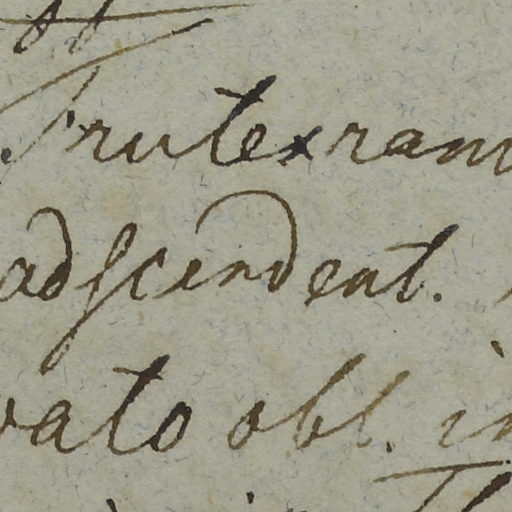 Frutex ram
adscendent.
vato obl. in